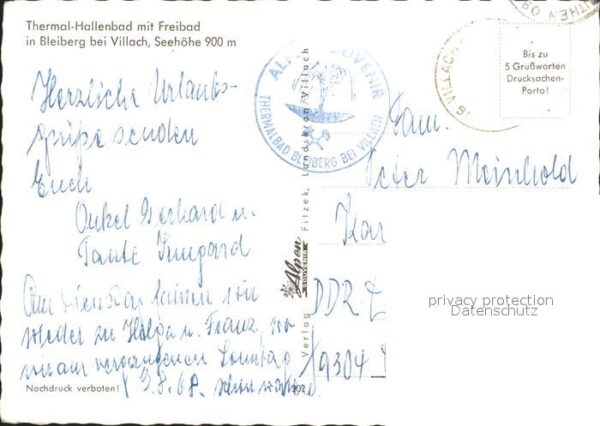 Thermal-Hallenbad mit Freibad
in Bleiberg bei Villach, Seehöhe 900 m
Herzliche Urlaubs-
grüße senden
Euch
Onkel Gerhard u.
Tante Irmgard
Am Dienstag fahren wir
wieder zu Helga u. Franz, wo
wir am vergangenen Sonntag
3.8.68. schon waren.
Nachdruck verboten!
THERMALBAD BLEIBERG BEI VILLACH
Verlag Fitzek, Landskron-Villach
Alpen
VILLACH
Bis zu
5 Grußworten
Drucksachen-
Porto!
Fam.
Peter Meinhold
Kar
DDR-
9304
privacy protection
Datenschutz